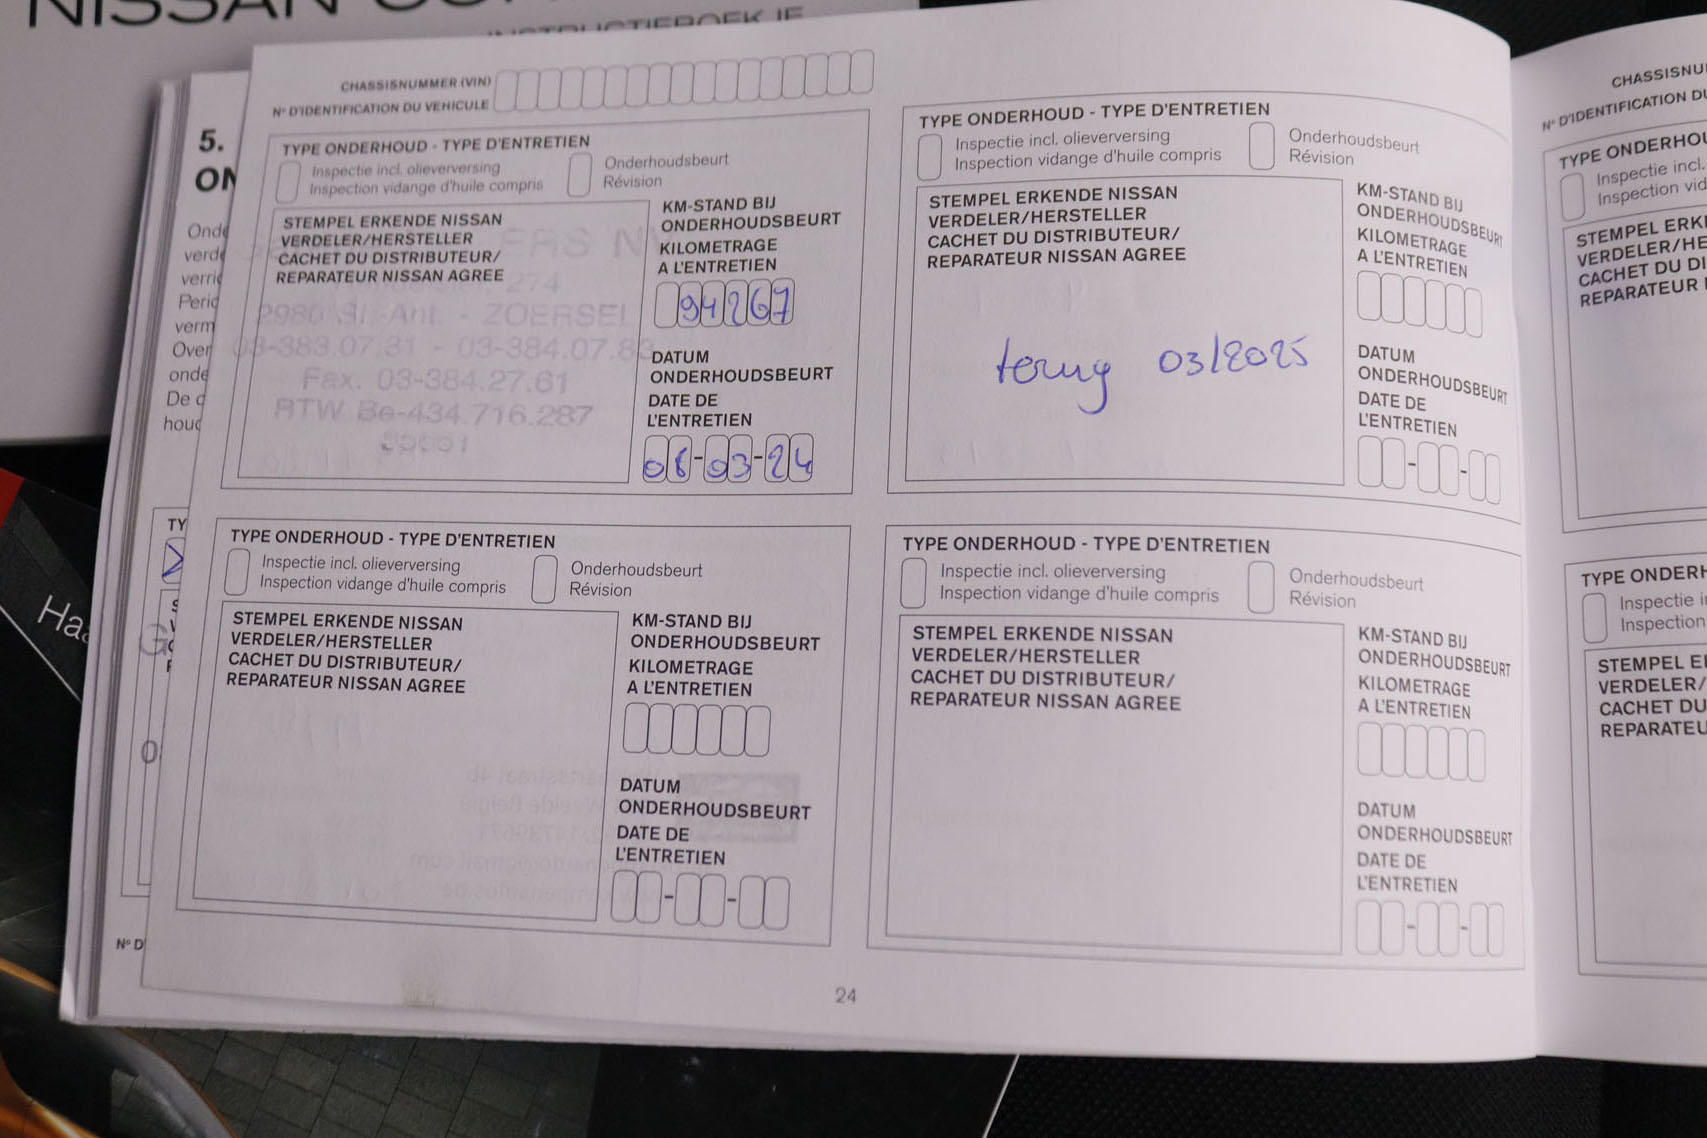 NISSAN CO
INSTRUCTIEBOEKJE
5.
ON
Onde
verde
verric
Peric
verm
Over
onde
De d
houd
TY
Nº D
Haa
CHASSISNUMMER (VIN)
Nº D'IDENTIFICATION DU VEHICULE
TYPE ONDERHOUD - TYPE D'ENTRETIEN
Inspectie incl. olieverversing
Inspection vidange d'huile compris
Onderhoudsbeurt
Révision
STEMPEL ERKENDE NISSAN
VERDELER/HERSTELLER
CACHET DU DISTRIBUTEUR/
REPARATEUR NISSAN AGREE
ERS NV
274
2980 St.-Ant. - ZOERSEL
03-383.07.31 - 03-384.07.83
Fax. 03-384.27.61
BTW Be-434.716.287
KM-STAND BIJ
ONDERHOUDSBEURT
KILOMETRAGE
A L'ENTRETIEN
94267
DATUM
ONDERHOUDSBEURT
DATE DE
L'ENTRETIEN
08-03-24
TYPE ONDERHOUD - TYPE D'ENTRETIEN
Inspectie incl. olieverversing
Inspection vidange d'huile compris
Onderhoudsbeurt
Révision
STEMPEL ERKENDE NISSAN
VERDELER/HERSTELLER
CACHET DU DISTRIBUTEUR/
REPARATEUR NISSAN AGREE
terug 03/2025
KM-STAND BIJ
ONDERHOUDSBEURT
KILOMETRAGE
A L'ENTRETIEN
DATUM
ONDERHOUDSBEURT
DATE DE
L'ENTRETIEN
TYPE ONDERHOUD - TYPE D'ENTRETIEN
Inspectie incl. olieverversing
Inspection vidange d'huile compris
Onderhoudsbeurt
Révision
STEMPEL ERKENDE NISSAN
VERDELER/HERSTELLER
CACHET DU DISTRIBUTEUR/
REPARATEUR NISSAN AGREE
KM-STAND BIJ
ONDERHOUDSBEURT
KILOMETRAGE
A L'ENTRETIEN
DATUM
ONDERHOUDSBEURT
DATE DE
L'ENTRETIEN
TYPE ONDERHOUD - TYPE D'ENTRETIEN
Inspectie incl. olieverversing
Inspection vidange d'huile compris
Onderhoudsbeurt
Révision
STEMPEL ERKENDE NISSAN
VERDELER/HERSTELLER
CACHET DU DISTRIBUTEUR/
REPARATEUR NISSAN AGREE
KM-STAND BIJ
ONDERHOUDSBEURT
KILOMETRAGE
A L'ENTRETIEN
DATUM
ONDERHOUDSBEURT
DATE DE
L'ENTRETIEN
24
CHASSISNU
Nº D'IDENTIFICATION DU
TYPE ONDERHOU
Inspectie incl.
Inspection vid
STEMPEL ERKE
VERDELER/HE
CACHET DU DI
REPARATEUR
TYPE ONDERH
Inspectie i
Inspection
STEMPEL E
VERDELER/
CACHET DU
REPARATEU